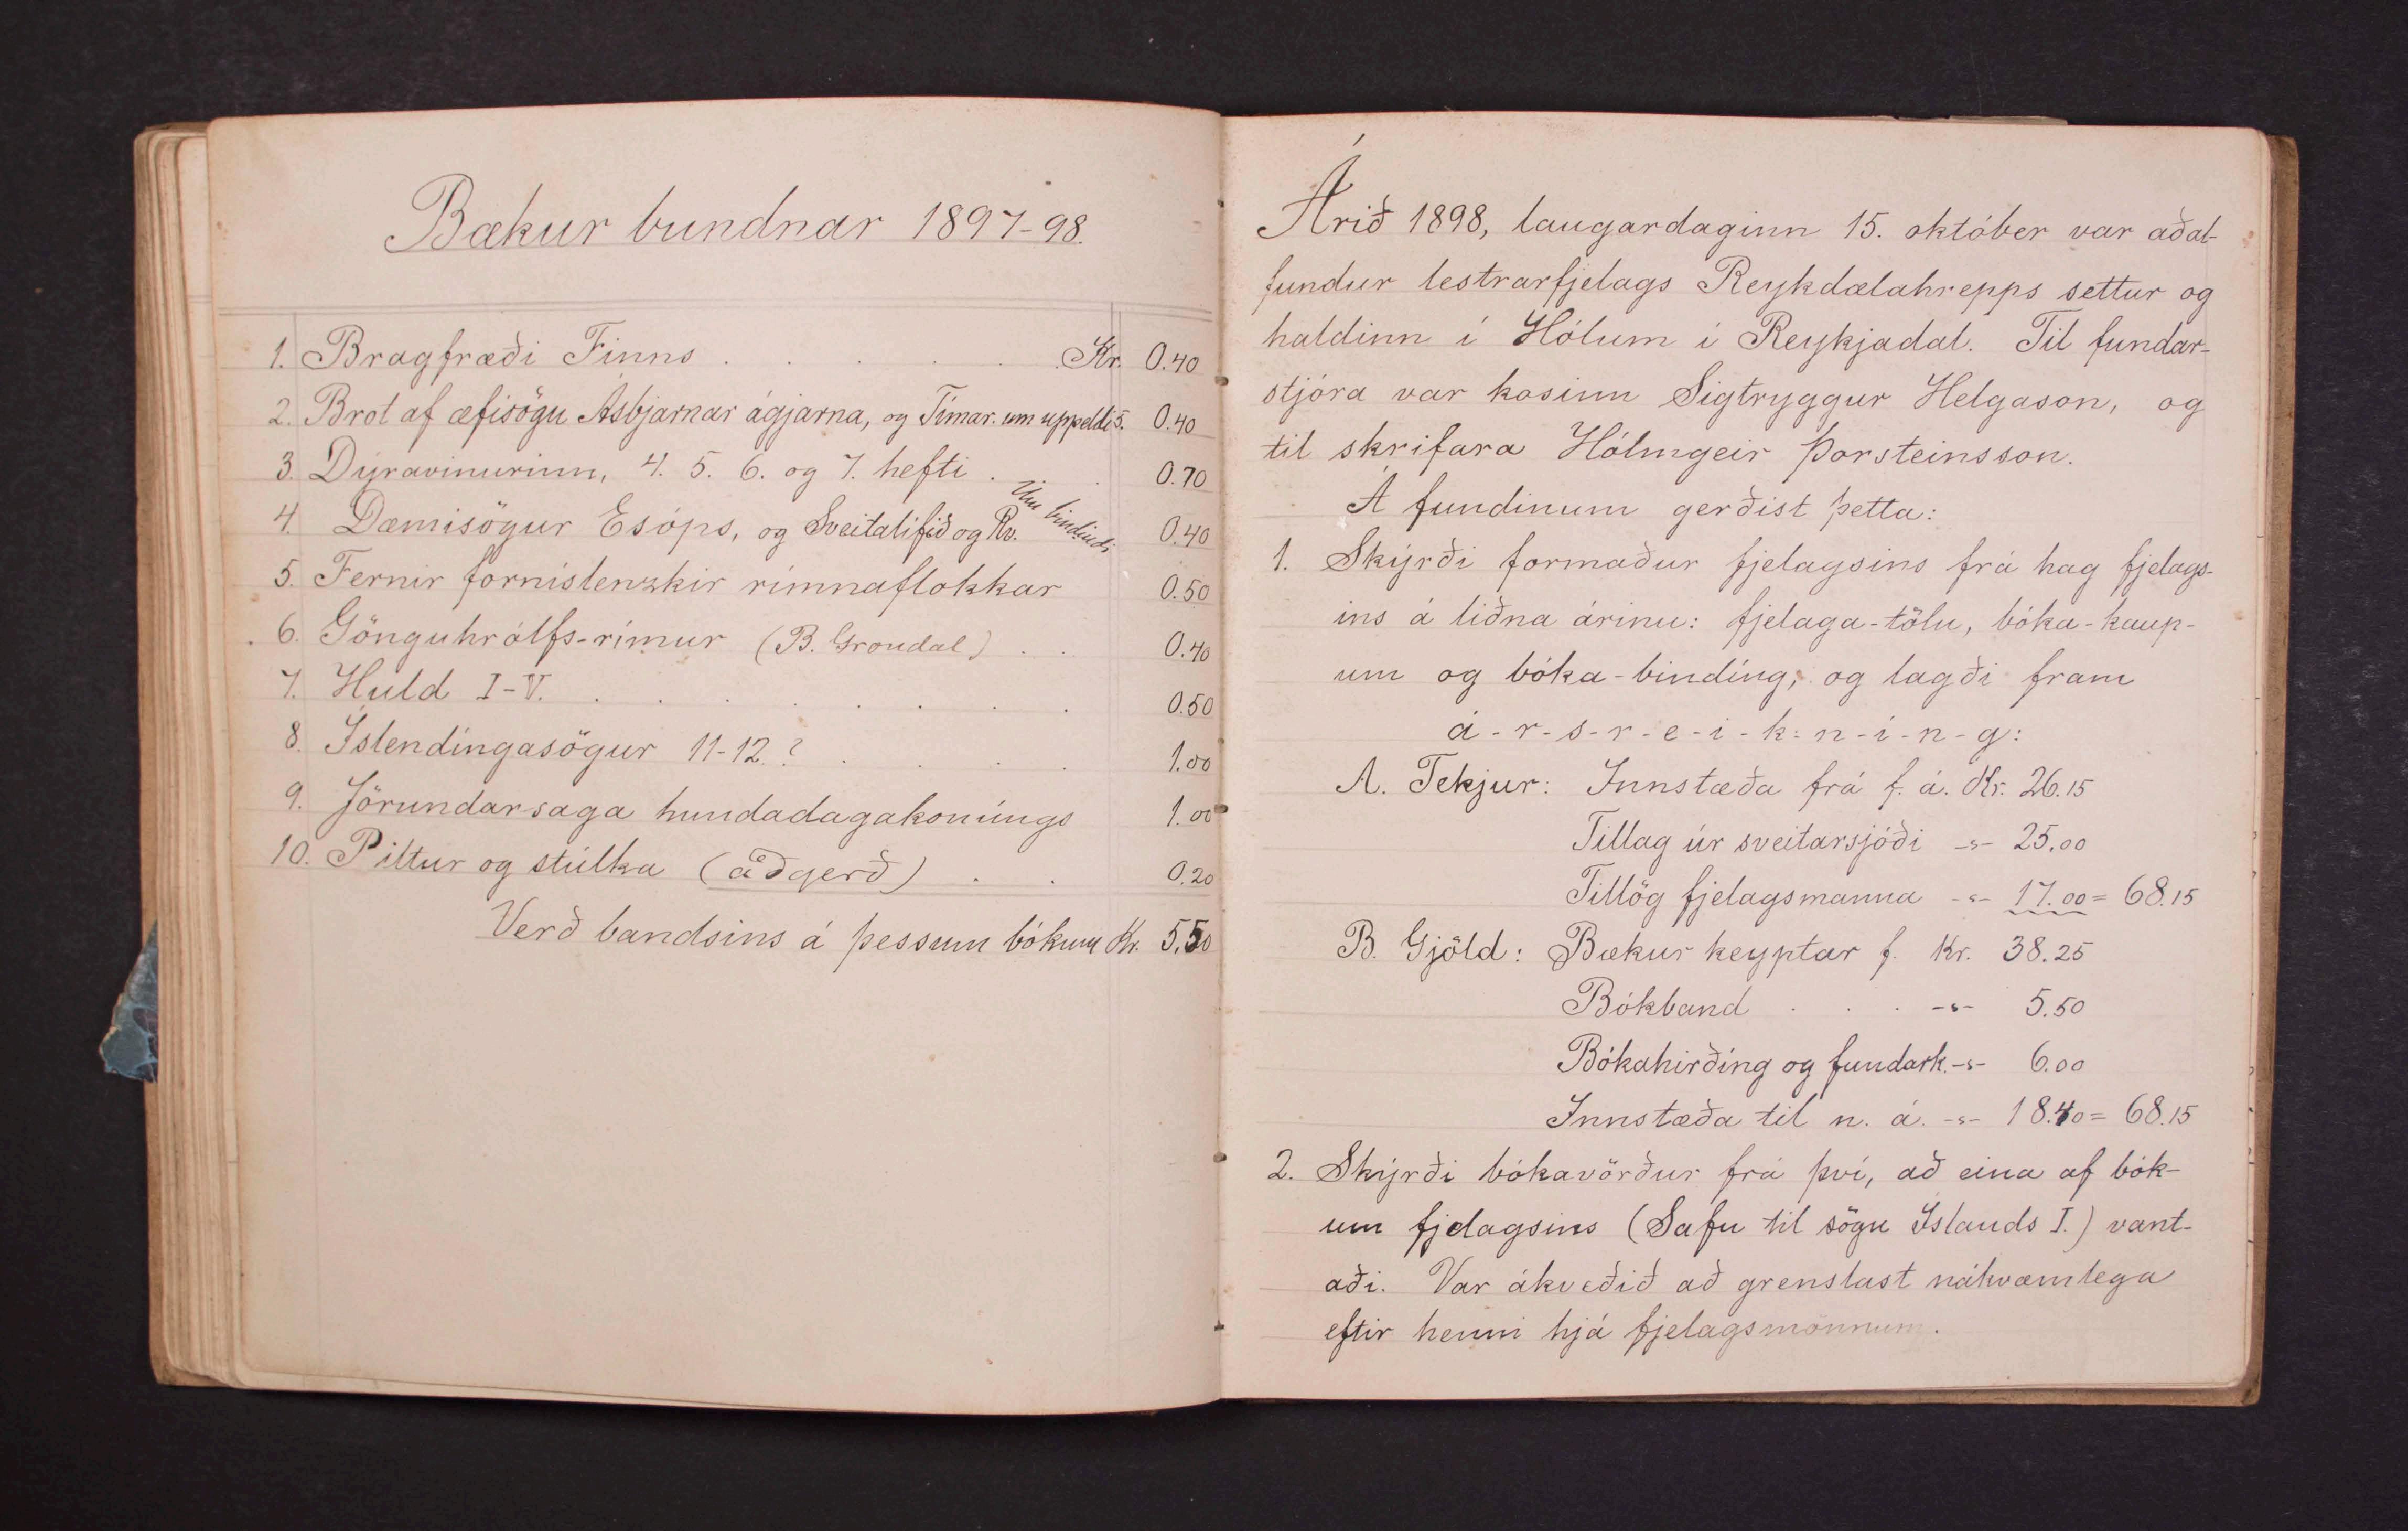 Bækur bundnar 1897-98.
1. Bragfræði Finns . . . . . Kr. 0.40
2. Brot af æfisögu Ásbjarnar ágjarna, og Tímar. um uppeldi 5. 0.40
3. Dýravinurinn, 4. 5. 6. og 7. hefti . . 0.70
4. Dæmisögur Esóps, og Sveitalífið og Rv. Um bindindi 0.40
5. Fernir forníslenzkir rímnaflokkar 0.50
6. Gönguhrólfs-rímur (B. Gröndal) . . 0.40
7. Huld I-V. . . . . . . . . 0.50
8. Íslendíngasögur 11-12.? . . . . 1.00
9. Jörundarsaga hundadagakonúngs 1.00
10. Piltur og stúlka (aðgerð) . . 0.20
Verð bandsins á þessum bókum Kr. 5.50
Árið 1898, laugardaginn 15. október var aðal-
fundur lestrarfjelags Reykdælahrepps settur og
haldinn í Hólum í Reykjadal. Til fundar-
stjóra var kosinn Sigtryggur Helgason, og
til skrifara Hólmgeir Þorsteinsson.
Á fundinum gerðist þetta:
1. Skýrði formaður fjelagsins frá hag fjelags-
ins á liðna árinu: fjelaga-tölu, bóka-kaup-
um og bóka-bindíng, og lagði fram
á-r-s-r-e-i-k-n-í-n-g:
A. Tekjur: Innstæða frá f. á. Kr. 26.15
Tillag úr sveitarsjóði -"- 25.00
Tillög fjelagsmanna -"- 17.00 = 68.15
B. Gjöld: Bækur keyptar f. Kr. 38.25
Bókband . . . -"- 5.50
Bókahirðíng og fundark. -"- 6.00
Innstæða til n. á. -"- 18.40 = 68.15
2. Skýrði bókavörður frá því, að eina af bók-
um fjelagsins (Safn til sögu Íslands I.) vant-
aði. Var ákveðið að grenslast nákvæmlega
eftir henni hjá fjelagsmönnum.